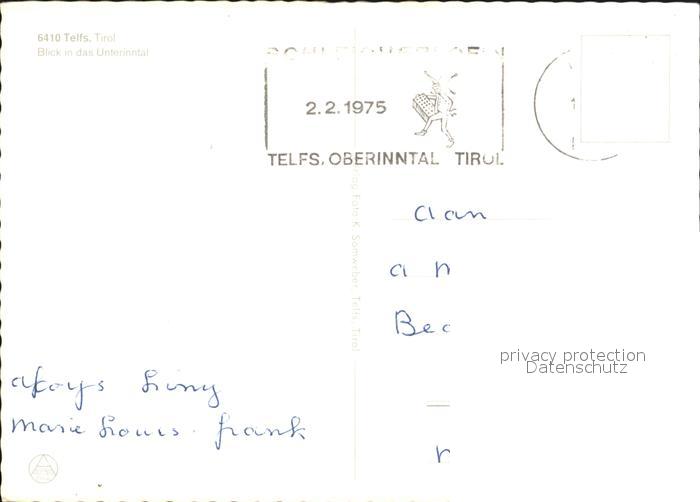 6410 Telfs, Tirol
Blick in das Unterinntal
2.2.1975
TELFS, OBERINNTAL TIROL
Foto K. Somweber, Telfs, Tirol
aan
a n
Bec
privacy protection
Datenschutz
marie Louis. frank
r